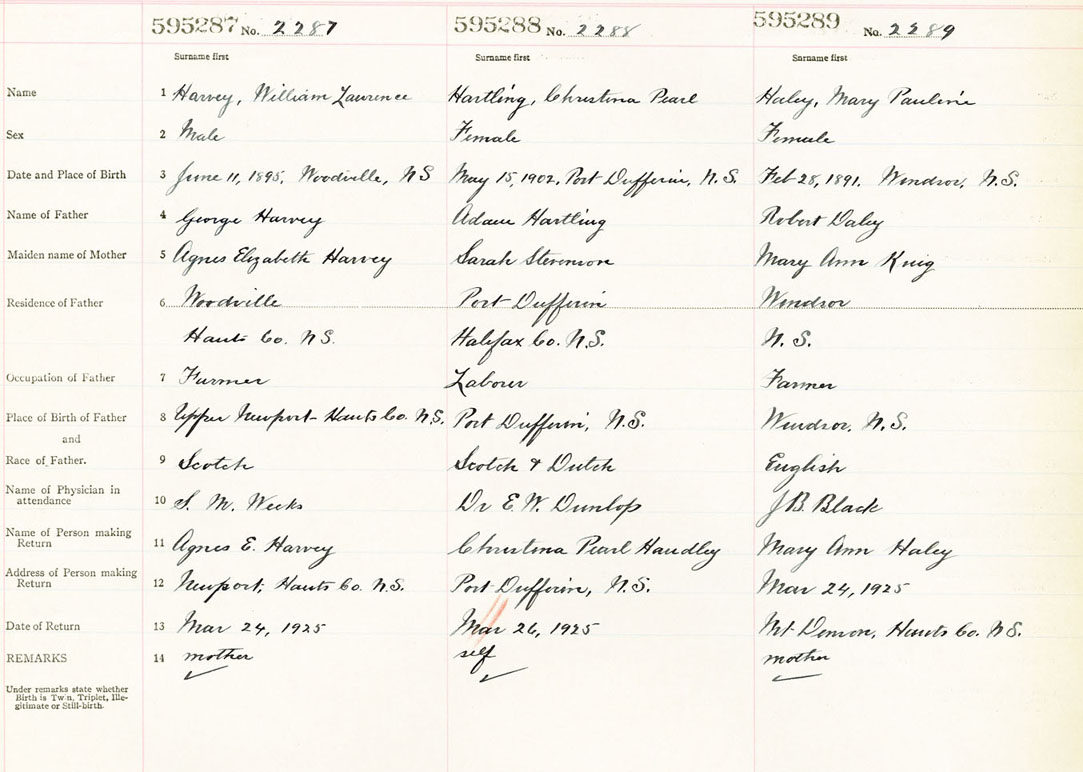 595287 No. 2287 595288 No. 2288 595289 No. 2289
Surname first Surname first Surname first
Name 1 Harvey, William Lawrence Hartling, Christina Pearl Haley, Mary Pauline
Sex 2 Male Female Female
Date and Place of Birth 3 June 11, 1895, Woodville, N S May 15, 1902, Port Dufferin, N.S. Feb 28, 1891. Windsor, N.S.
Name of Father 4 George Harvey Adam Hartling Robert Daley
Maiden name of Mother 5 Agnes Elizabeth Harvey Sarah Stevenson Mary Ann King
Residence of Father 6 Woodville Port Dufferin Windsor
Hants Co. N S. Halifax Co. N.S. N. S.
Occupation of Father 7 Farmer Laborer Farmer
Place of Birth of Father 8 Upper Newport - Hants Co. N.S. Port Dufferin, N.S. Windsor, N.S.
and
Race of Father. 9 Scotch Scotch & Dutch English
Name of Physician in
attendance 10 S. M. Weeks Dr E. W. Dunlop J B. Black
Name of Person making
Return 11 Agnes E. Harvey Christina Pearl Handley Mary Ann Haley
Address of Person making
Return 12 Newport, Hants Co. N.S. Port Dufferin, N.S. Mar 24, 1925
Date of Return 13 Mar 24, 1925 Mar 26, 1925 Mt Denson, Hants Co. N.S.
REMARKS 14 mother self mother
Under remarks state whether
Birth is Twin, Triplet, Ille-
gitimate or Still-birth.